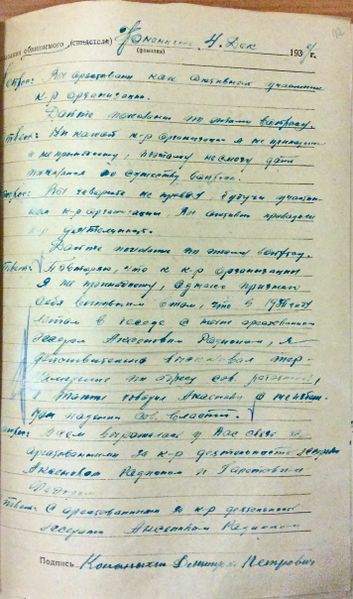 показания обвиняемого (свидетеля) 4 Дек 1937 г.
(фамилия)
Вопрос: Вы арестованы как активный участник
к-р организации.
Дайте показания по этому вопросу.
Ответ: Ни какой к-р организации я не
и не принадлежу, поэтому не могу дать
показания по существу вопроса.
Вопрос: Вы говорите не правду будучи участни-
ком к-р организации Вы активно проводили
к-р деятельность.
Дайте показания по этому вопросу.
Ответ: Повторяю, что к к-р организации
я не принадлежу, однако признаю
себя виновным в том, что в 1936 году
летом в беседе с ныне арестованным
Аксеновым Родионом, я
действительно высказывал
по адресу сов.
а также говорил Аксенову о
падении сов. власти.
Вопрос: В чем выражалась у Вас связь с
арестованными за к-р деятельность
Аксеновым Родионом и
Федором
Ответ: С арестованным за к-р деятельность
Аксеновым Родионом
Подпись Дмитрий Петрович